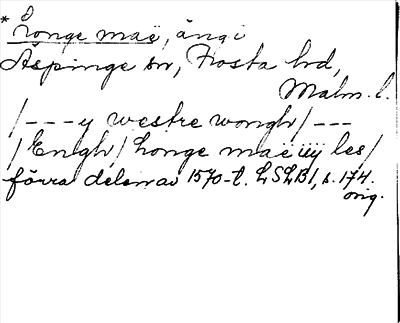 * Longe maë, äng i
Äspinge sn, Frosta hrd,
Malm. l.
/ - - - y westre wongh / - - -
/ Engh / Longe maë iiij les /
förra delen av 1570-t. LSLB 1, s. 174.
orig.